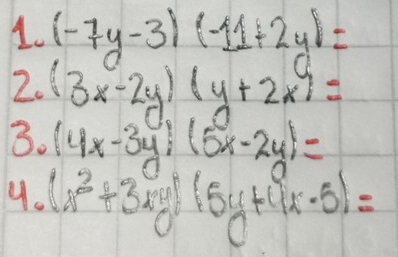 1. (-7y-3) (-11+2y) =
2. (3x-2y) (y+2x) =
3. (4x-3y) (5x-2y) =
4. (x²+3xy) (5y+4x-5) =